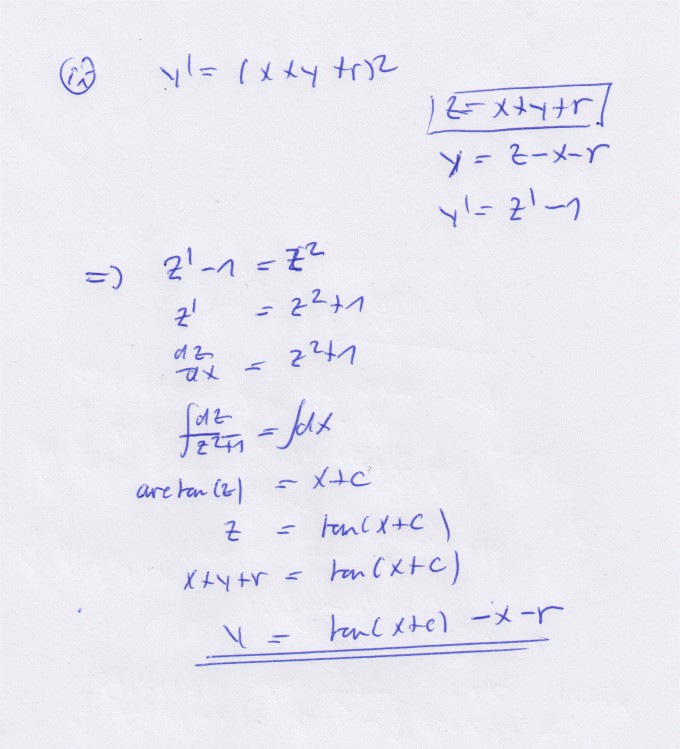 iv) y' = (x+y+r)²
z = x+y+r
y = z-x-r
y' = z'-1
=> z'-1 = z²
z' = z²+1
dz/dx = z²+1
∫dz/(z²+1) = ∫dx
arctan(z) = x+c
z = tan(x+c)
x+y+r = tan(x+c)
y = tan(x+c) -x-r